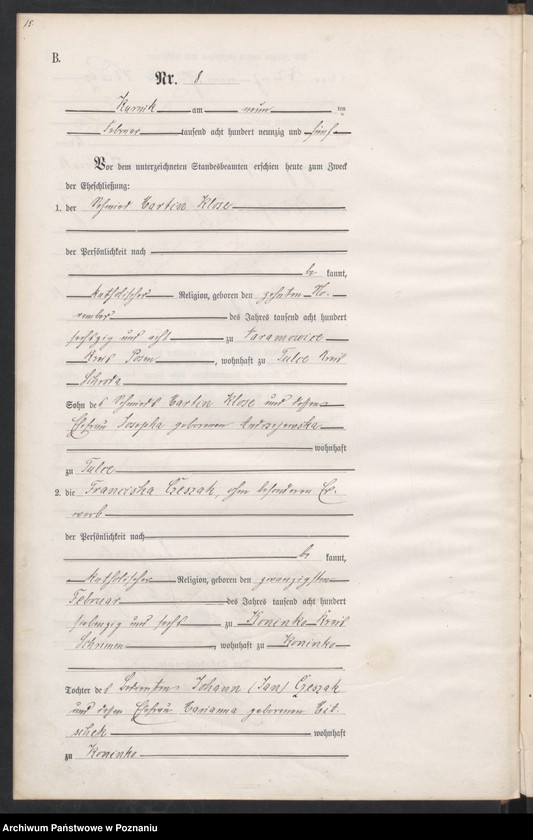 15
B.
Nr. 8
Kurnik am neun ten
Februar tausend acht hundert neunzig und fünf
Vor dem unterzeichneten Standesbeamten erschien heute zum Zweck
der Eheschließung:
1. der Schmied Martin Klose
der Persönlichkeit nach
be kannt,
katholischer Religion, geboren den zehnten No-
vember des Jahres tausend acht hundert
sechszig und acht zu Naramowice
Kreis Posen, wohnhaft zu Tulce Kreis
Schroda
Sohn des Schmieds Martin Klose und dessen
Ehefrau Josepha geborenen Andrzejewska
wohnhaft
zu Tulce
2. die Franciska Czeszak, ohne besonderen Er-
werb
der Persönlichkeit nach
be kannt,
katholischer Religion, geboren den zwanzigsten
Februar des Jahres tausend acht hundert
siebenzig und sechs zu Koninko Kreis
Schrimm, wohnhaft zu Koninko
Tochter des Johann (Jan) Czeszak
und dessen Ehefrau Marianna geborenen
wohnhaft
zu Koninko
Archiwum Państwowe w Poznaniu